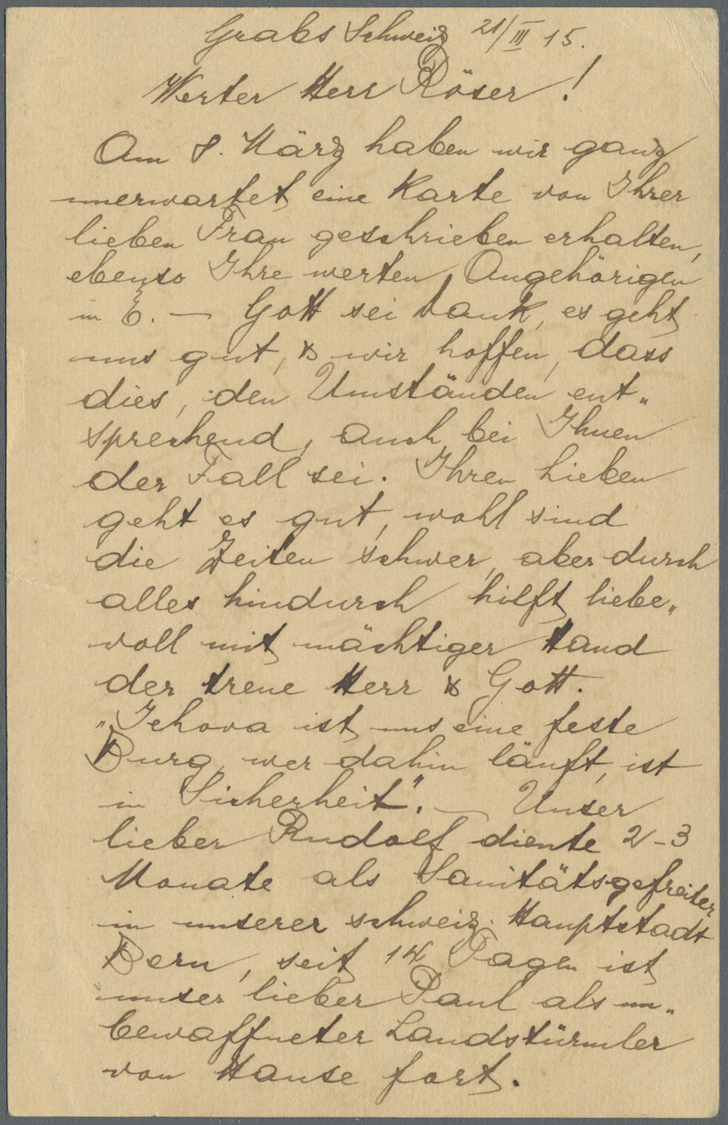 Grabs Schweiz 21/III 15.
Werter Herr Röser!
Am 8. März haben wir ganz
unerwartet eine Karte von Ihrer
lieben Frau geschrieben erhalten,
ebenso Ihre werten Angehörigen
in E. — Gott sei Dank, es geht
uns gut, & wir hoffen, dass
dies, den Umständen ent„
sprechend, auch bei Ihnen
der Fall sei. Ihren Lieben
geht es gut, wohl sind
die Zeiten schwer, aber durch
alles hindurch hilft liebe„
voll mit mächtiger Hand
der treue Herr & Gott.
„Jehova ist uns eine feste
Burg, wer dahin läuft, ist
in Sicherheit". — Unser
lieber Rudolf diente 2-3
Monate als Sanitätsgefreiter
in unserer schweiz. Hauptstadt
Bern, seit 14 Tagen ist
unser lieber Paul als un„
bewaffneter Landstürmler
von Hause fort.